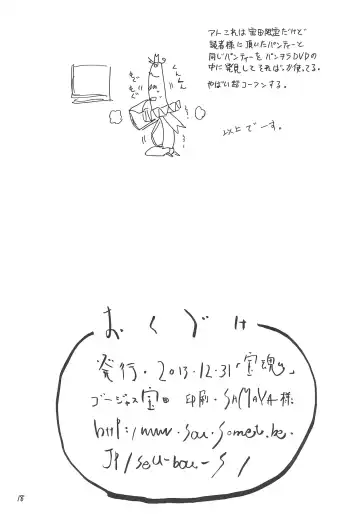 アトこれは宝田限定だけど
読者様に頂いたパンティーと
同じパンティーをパンチラDVDの
中に発見してそればっか使ってる。
やばい超コーフンする。
くんくん
もぐもぐ
以上でーす。
おくづけ
発行・2013・12・31「宝魂」
ゴージャス宝田 印刷・SAMAYA様
http://www.sou.
JP/sou-bou-s/
18